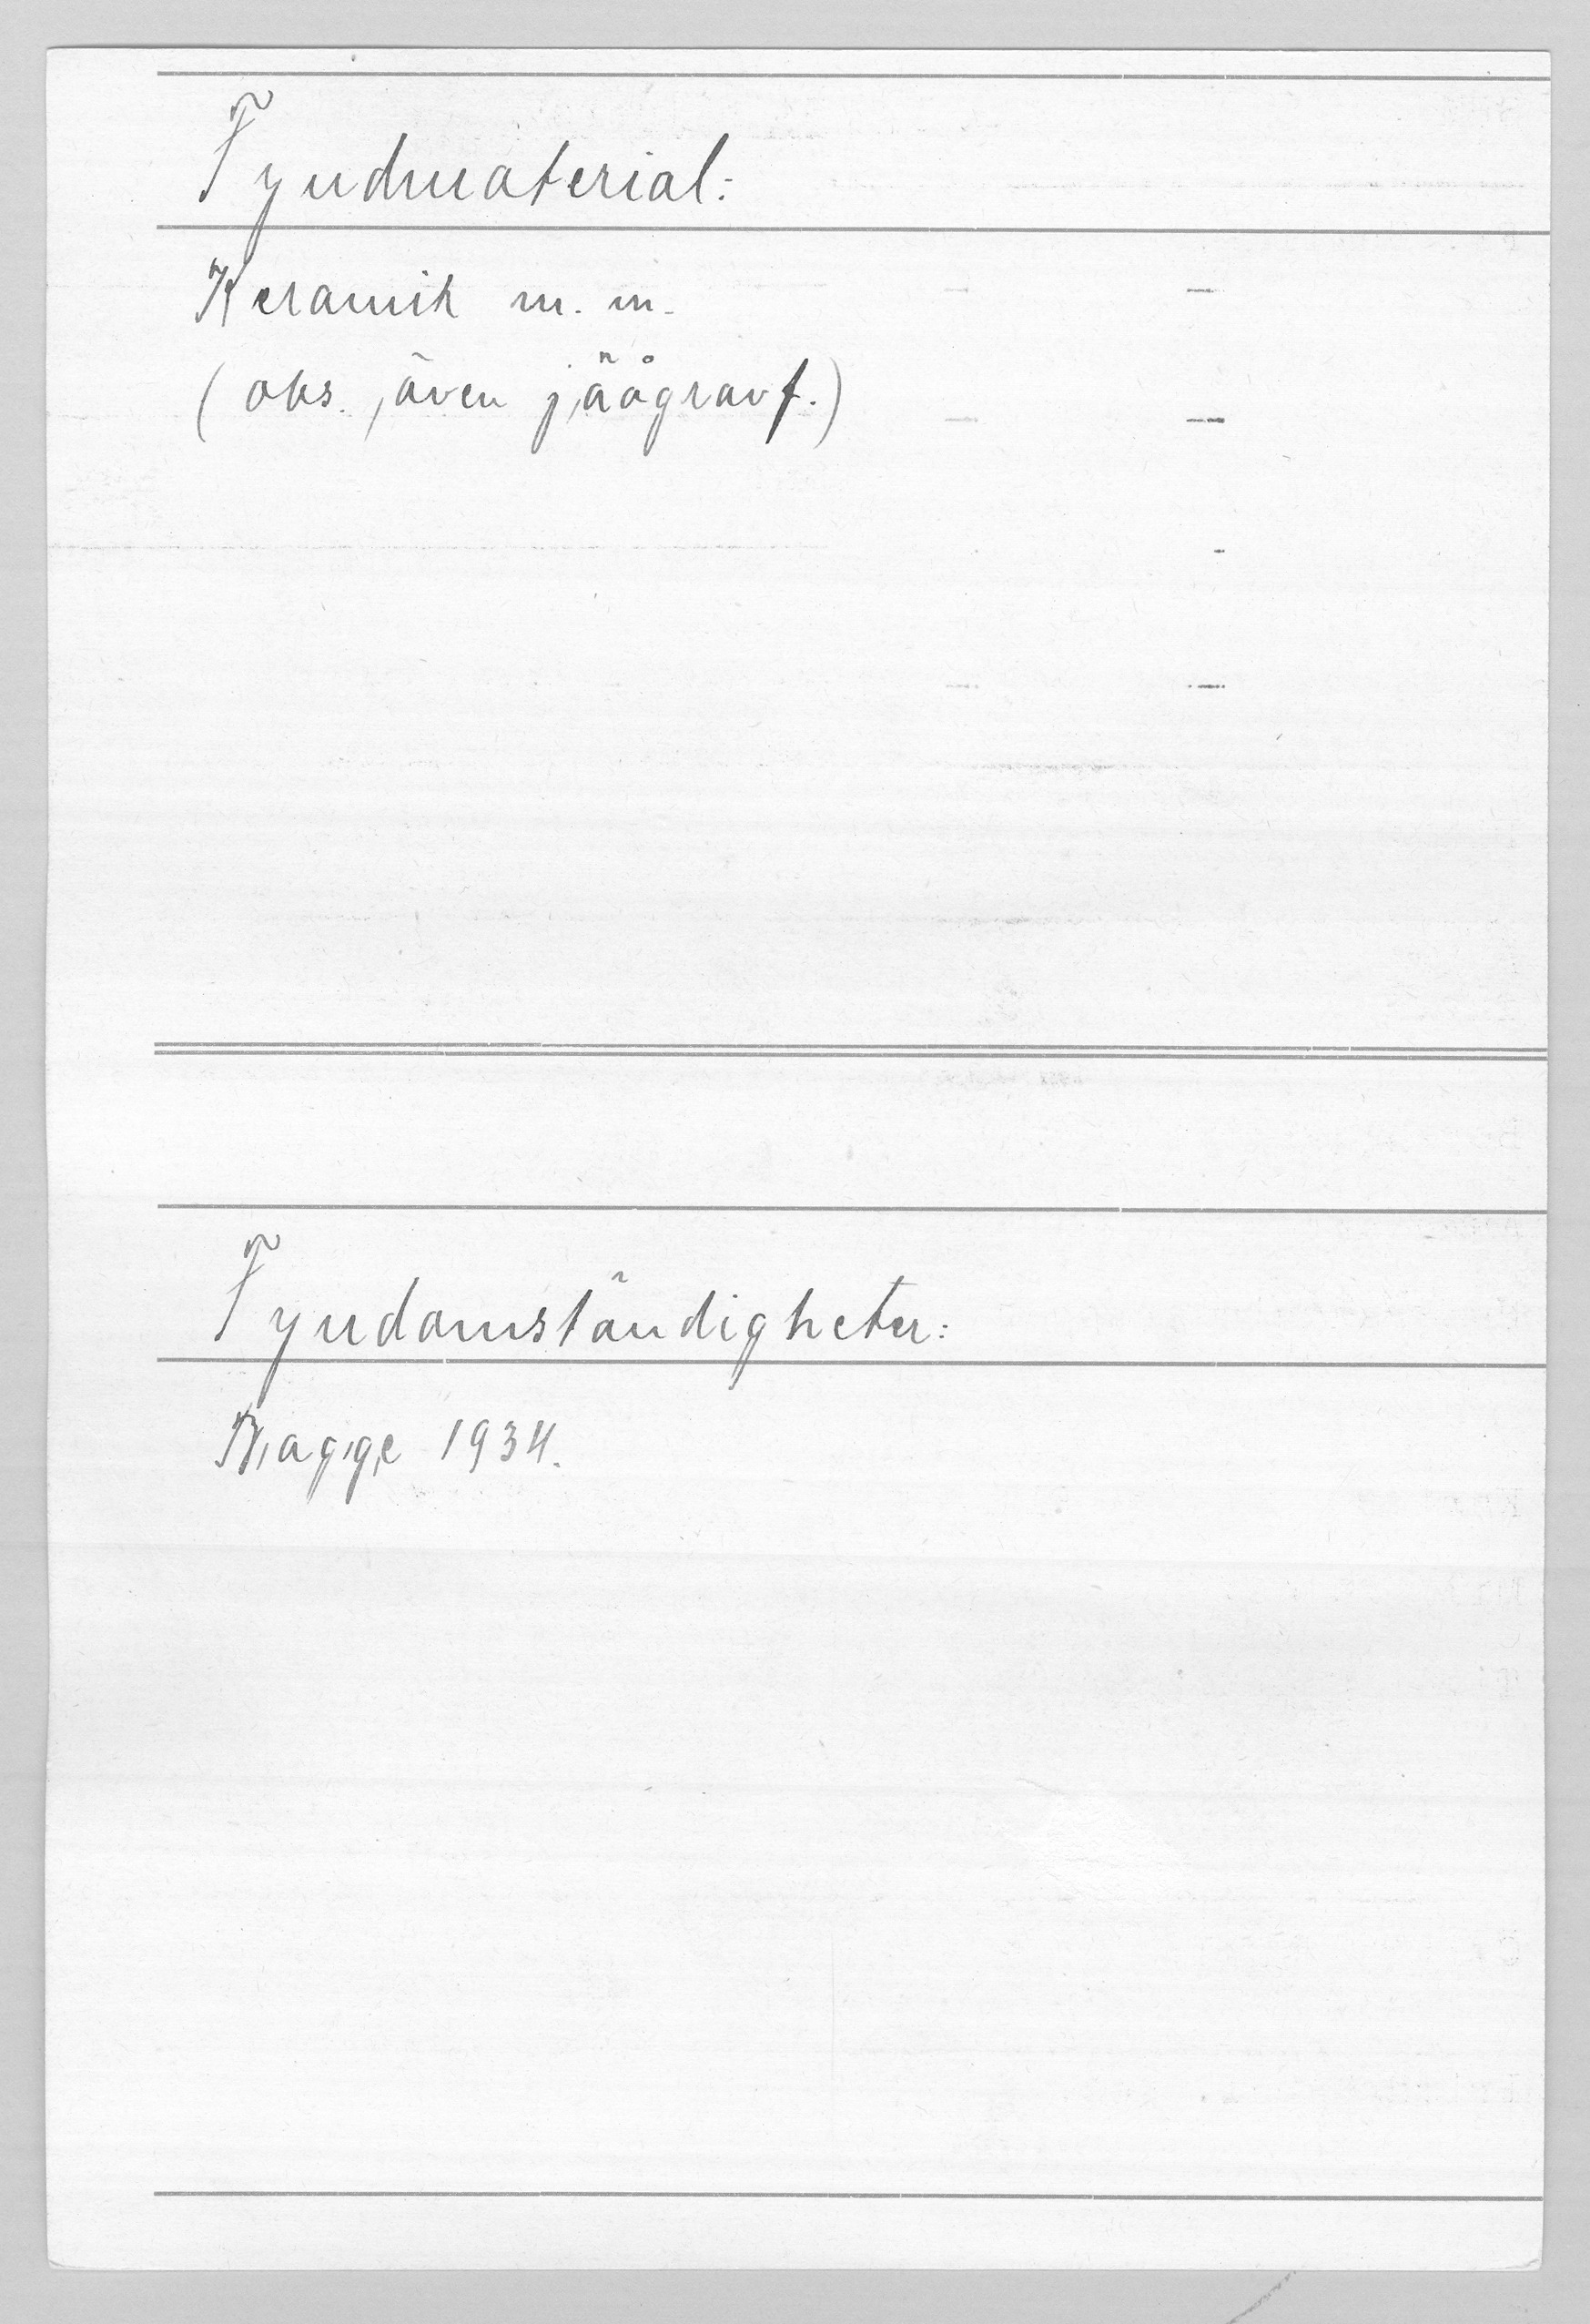 Fyndmaterial:
Keramik m. m.
(obs. även jäågravf.)
Fyndomständigheter:
Bagge 1934.